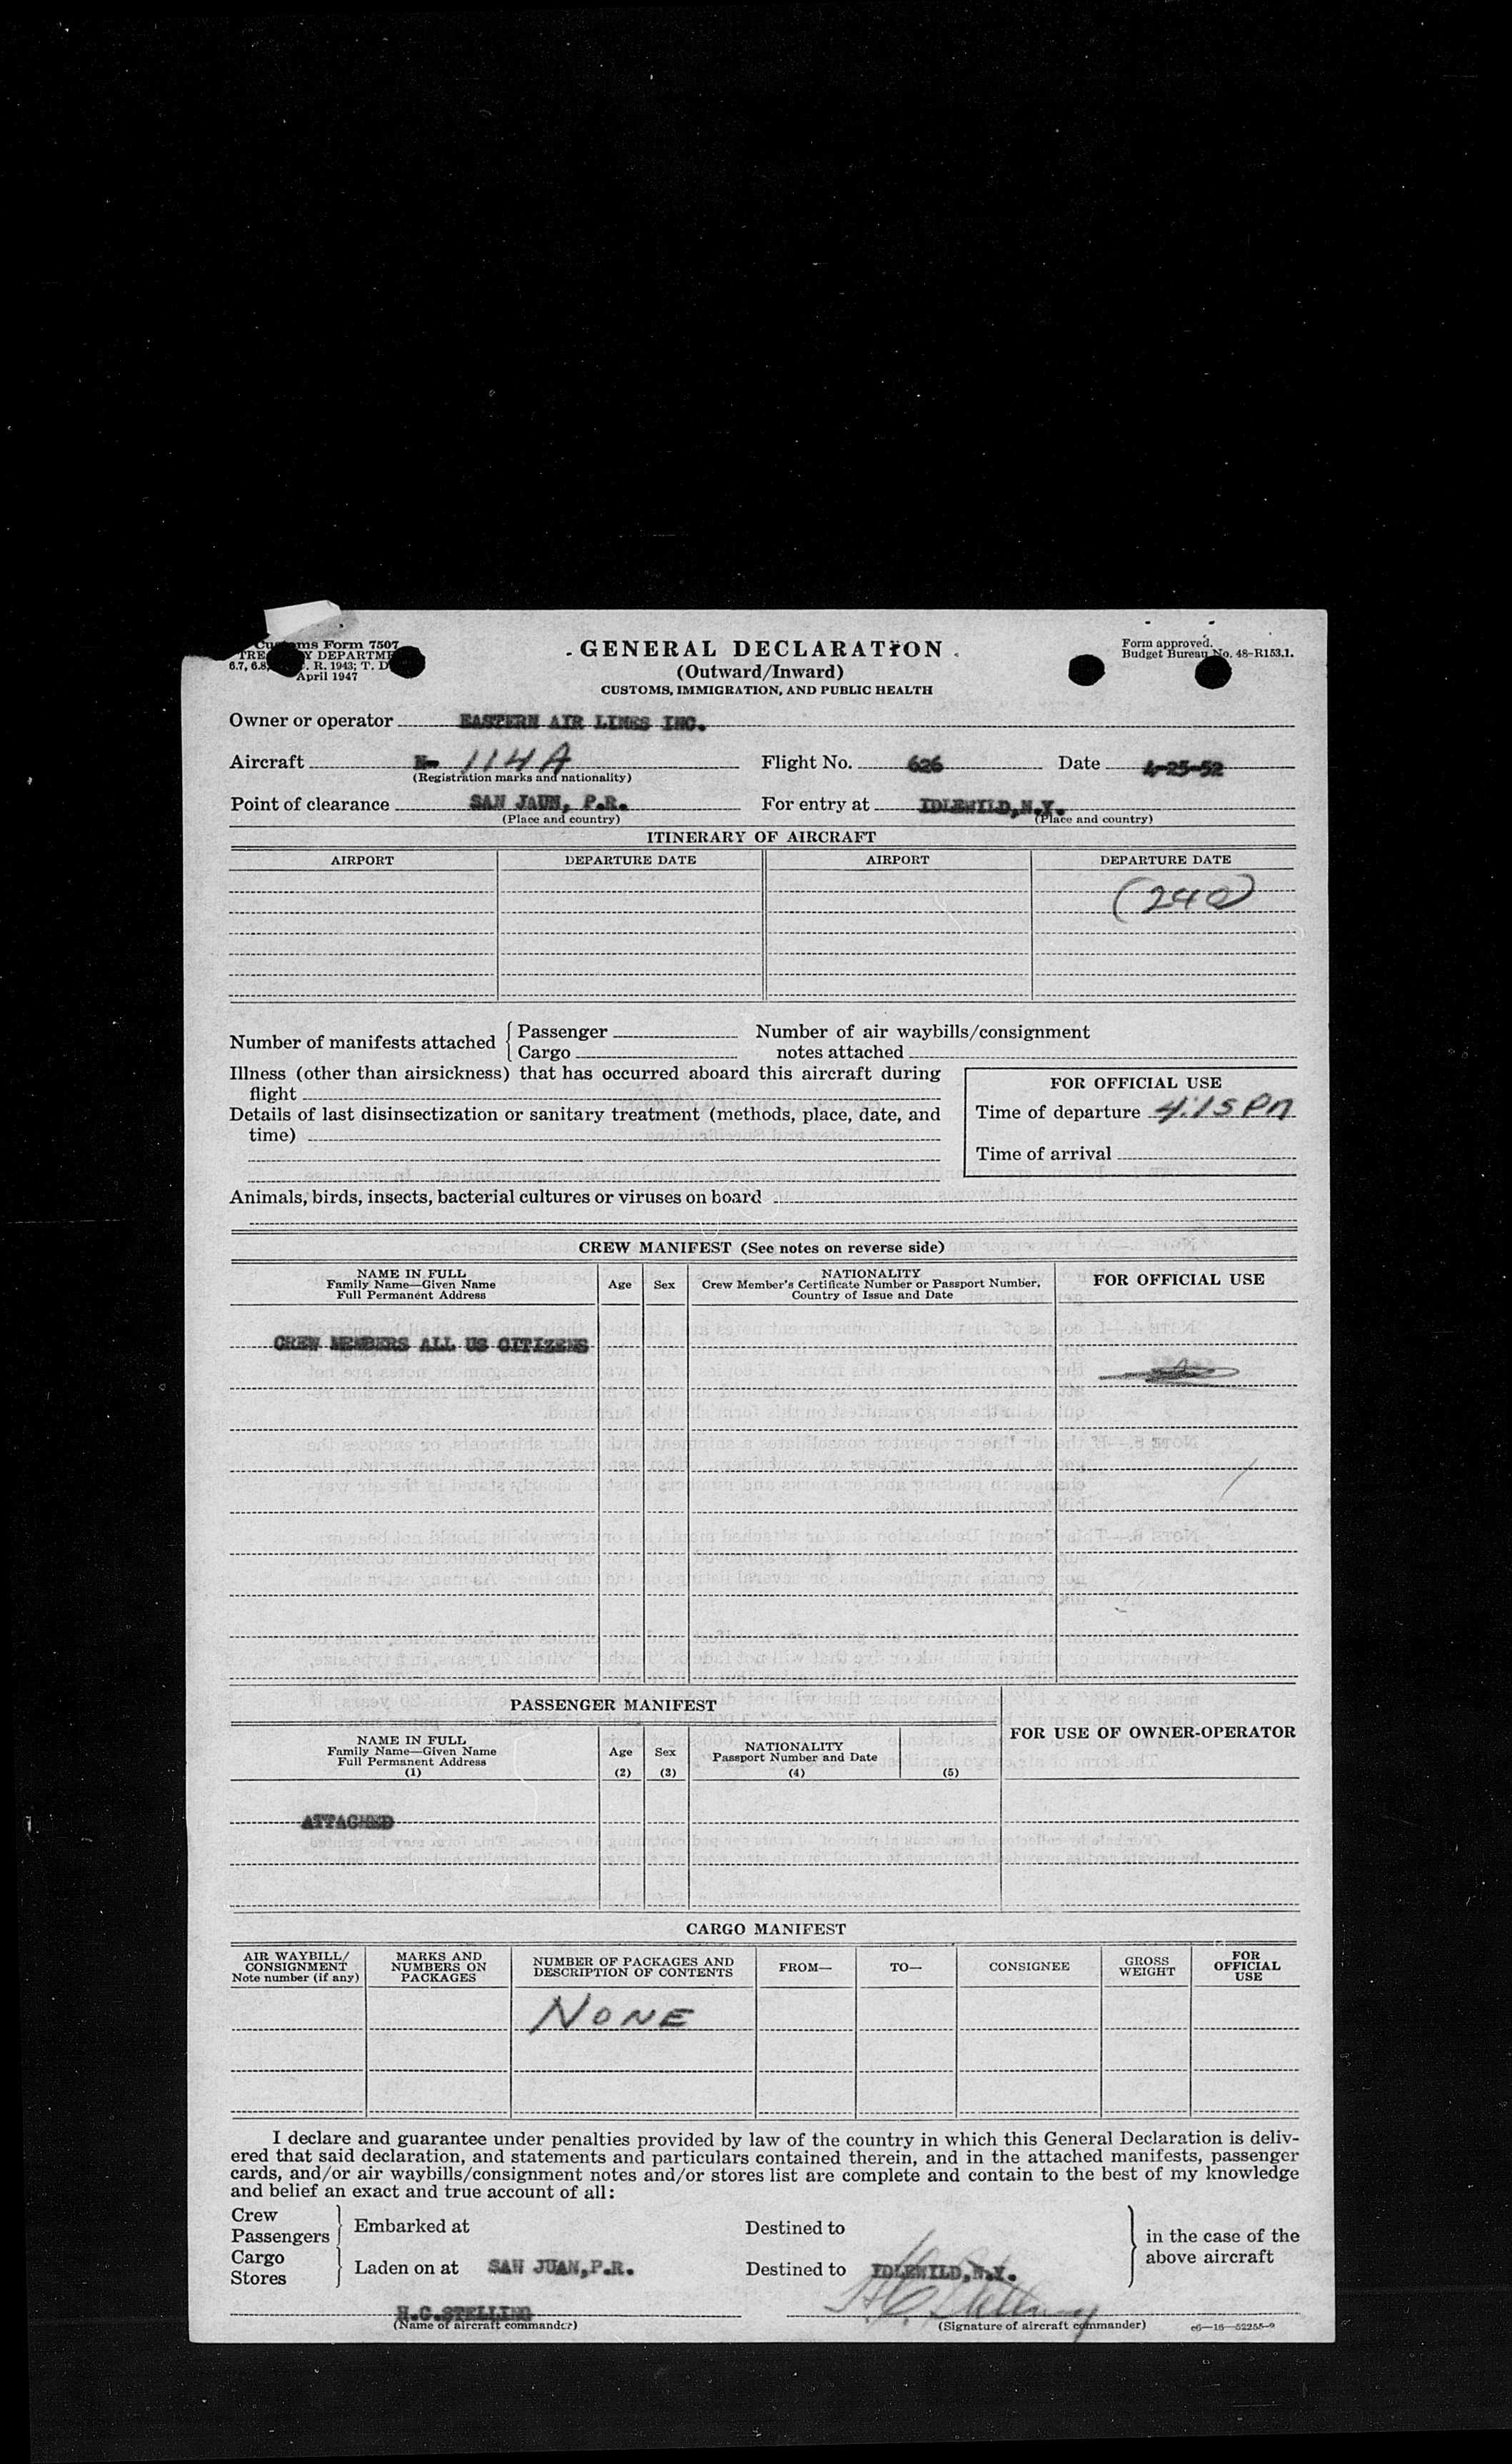 Customs Form 7507
TREASURY DEPARTMENT
6.7, 6.8, C. R. 1943; T. D.
April 1947
GENERAL DECLARATION
(Outward/Inward)
CUSTOMS, IMMIGRATION, AND PUBLIC HEALTH
Form approved.
Budget Bureau No. 48-R153.1.
Owner or operator EASTERN AIR LINES INC.
Aircraft N- 114A Flight No. 626 Date 4-25-52
(Registration marks and nationality)
Point of clearance SAN JAUN, P.R. For entry at IDLEWILD, N.Y.
(Place and country) (Place and country)
ITINERARY OF AIRCRAFT
AIRPORT DEPARTURE DATE AIRPORT DEPARTURE DATE
(240)
Number of manifests attached { Passenger Number of air waybills/consignment
Cargo notes attached
Illness (other than airsickness) that has occurred aboard this aircraft during
flight
Details of last disinsectization or sanitary treatment (methods, place, date, and
time)
FOR OFFICIAL USE
Time of departure 4:15 PM
Time of arrival
Animals, birds, insects, bacterial cultures or viruses on board
CREW MANIFEST (See notes on reverse side)
NAME IN FULL
Family Name—Given Name
Full Permanent Address
Age Sex
NATIONALITY
Crew Member's Certificate Number or Passport Number,
Country of Issue and Date
FOR OFFICIAL USE
CREW MEMBERS ALL US CITIZENS
PASSENGER MANIFEST
NAME IN FULL
Family Name—Given Name
Full Permanent Address
(1)
Age
(2)
Sex
(3)
NATIONALITY
Passport Number and Date
(4) (5)
FOR USE OF OWNER-OPERATOR
ATTACHED
CARGO MANIFEST
AIR WAYBILL/
CONSIGNMENT
Note number (if any)
MARKS AND
NUMBERS ON
PACKAGES
NUMBER OF PACKAGES AND
DESCRIPTION OF CONTENTS
FROM— TO— CONSIGNEE
GROSS
WEIGHT
FOR
OFFICIAL
USE
NONE
I declare and guarantee under penalties provided by law of the country in which this General Declaration is deliv-
ered that said declaration, and statements and particulars contained therein, and in the attached manifests, passenger
cards, and/or air waybills/consignment notes and/or stores list are complete and contain to the best of my knowledge
and belief an exact and true account of all:
Crew
Passengers } Embarked at Destined to
Cargo
Stores } Laden on at SAN JUAN, P.R. Destined to IDLEWILD, N.Y.
in the case of the
above aircraft
H.C. STELLING H C Stelling
(Name of aircraft commander) (Signature of aircraft commander) c6—16—52255-2